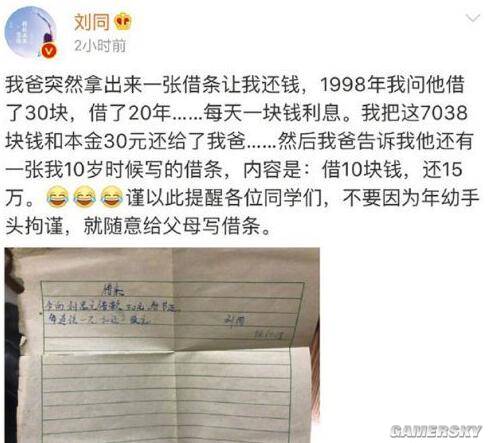 刘同
2小时前
我爸突然拿出来一张借条让我还钱，1998年我问他借
了30块，借了20年……每天一块钱利息。我把这7038
块钱和本金30元还给了我爸……然后我爸告诉我他还有
一张我10岁时候写的借条，内容是：借10块钱，还15
万。😂😂😂谨以此提醒各位同学们，不要因为年幼手
头拘谨，就随意给父母写借条。
借条
刘同
GAMERSKY